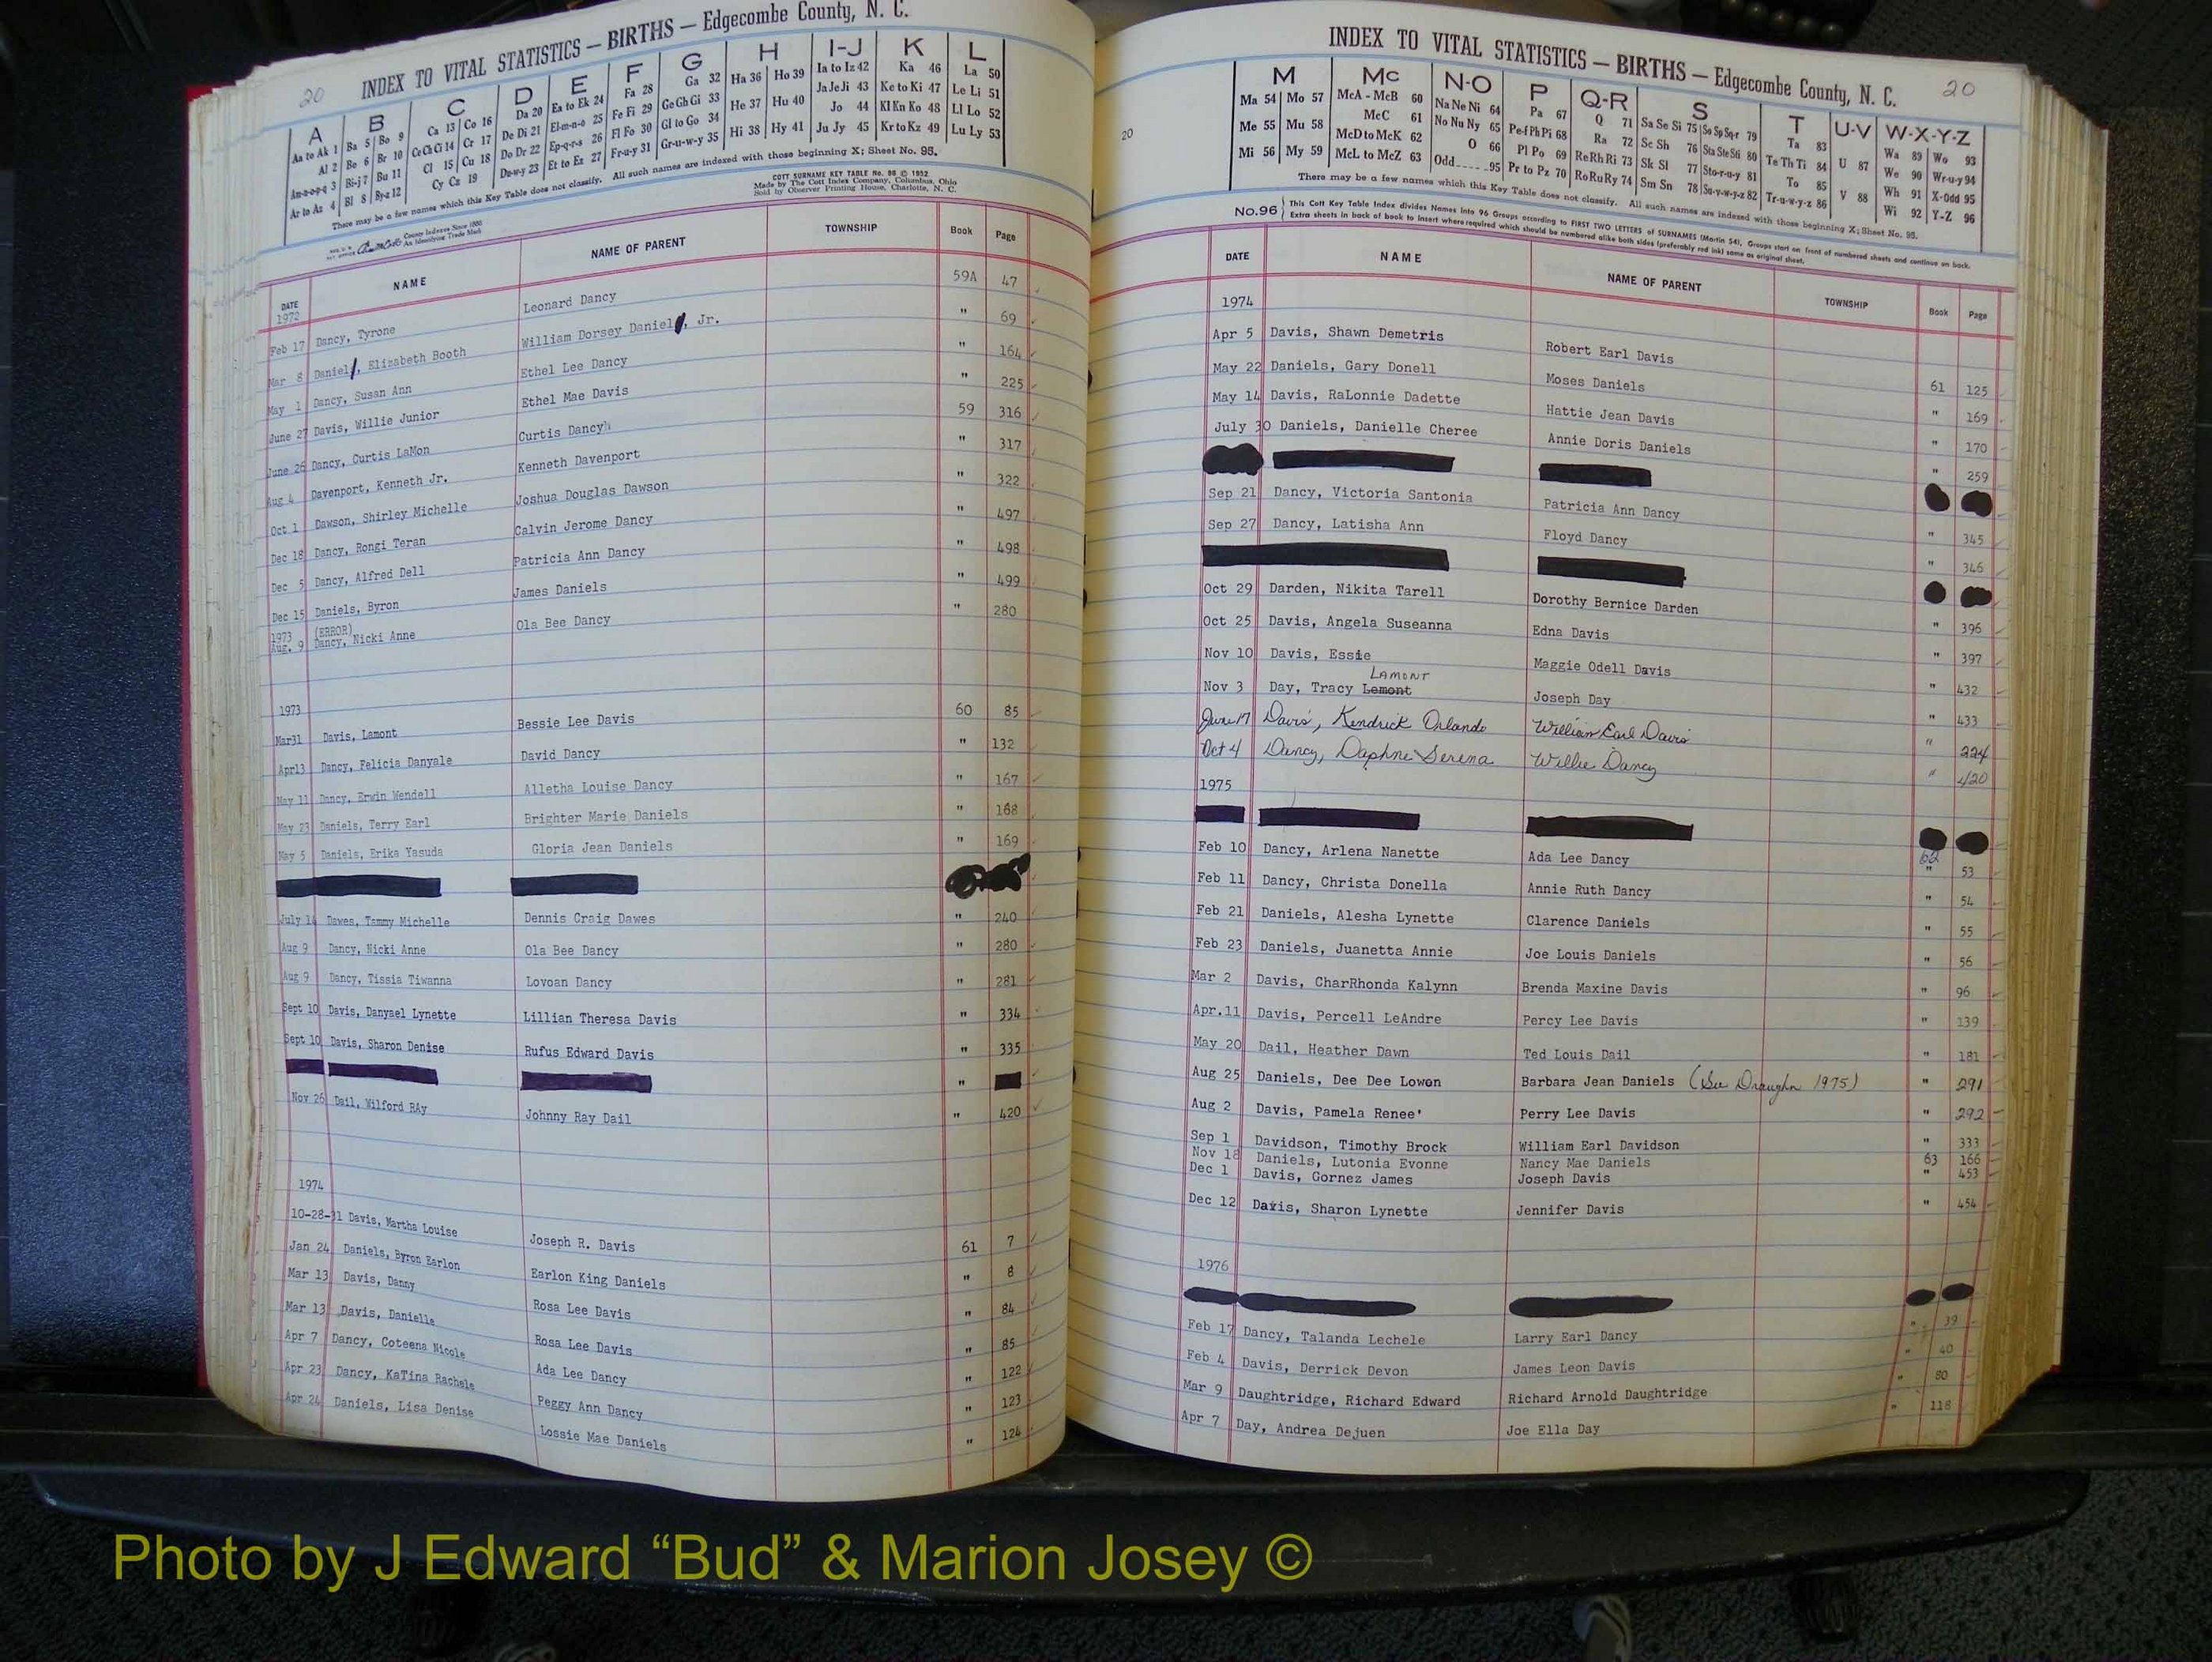 20 INDEX TO VITAL STATISTICS — BIRTHS — Edgecombe County, N. C.
A B C D E F G H I-J K L
Aa to Ak 1 Ba 5 Bo 9 Ca 13 Co 16 Da 20 Ea to Ek 24 Fa 28 Ga 32 Ha 36 Ho 39 Ia to Iz 42 Ka 46 La 50
Al 2 Be 6 Br 10 Ce Ch Ci 14 Cr 17 De Di 21 El-m-n-o 25 Fe Fi 29 Ge Gh Gi 33 He 37 Hu 40 Ja Je Ji 43 Ke to Ki 47 Le Li 51
An-n-o-p-q 3 Bi-j 7 Bu 11 Cl 15 Cu 18 Do Dr 22 Ep-q-r-s 26 Fl Fo 30 Gl to Go 34 Hi 38 Hy 41 Jo 44 Kl Kn Ko 48 Ll Lo 52
Ar to Az 4 Bl 8 By-z 12 Cy Cz 19 Du-w-y 23 Et to Ez 27 Fr-u-y 31 Gr-u-w-y 35 Ju Jy 45 Kr to Kz 49 Lu Ly 53
There may be a few names which this Key Table does not classify. All such names are indexed with those beginning X; Sheet No. 95.
COTT SURNAME KEY TABLE No. 96 © 1952
Made by The Cott Index Company, Columbus, Ohio
Sold by Observer Printing House, Charlotte, N. C.
County Indexes Since 1888
An Identifying Trade Mark
DATE NAME NAME OF PARENT TOWNSHIP Book Page
1972
Feb 17 Dancy, Tyrone Leonard Dancy 59A 47
Mar 8 Daniel, Elizabeth Booth William Dorsey Daniel, Jr. " 69
May 1 Dancy, Susan Ann Ethel Lee Dancy " 164
June 27 Davis, Willie Junior Ethel Mae Davis " 225
June 26 Dancy, Curtis LaMon Curtis Dancy 59 316
Aug 4 Davenport, Kenneth Jr. Kenneth Davenport " 317
Oct 1 Dawson, Shirley Michelle Joshua Douglas Dawson " 322
Dec 18 Dancy, Rongi Teran Calvin Jerome Dancy " 497
Dec 5 Dancy, Alfred Dell Patricia Ann Dancy " 498
Dec 15 Daniels, Byron James Daniels " 499
1973 (ERROR)
Aug. 9 Dancy, Nicki Anne Ola Bee Dancy " 280
1973
Mar31 Davis, Lamont Bessie Lee Davis 60 85
Apr13 Dancy, Felicia Danyale David Dancy " 132
May 11 Dancy, Erwin Wendell Alletha Louise Dancy " 167
May 23 Daniels, Terry Earl Brighter Marie Daniels " 168
May 5 Daniels, Erika Yasuda Gloria Jean Daniels " 169
July 14 Dawes, Tammy Michelle Dennis Craig Dawes " 240
Aug 9 Dancy, Nicki Anne Ola Bee Dancy " 280
Aug 9 Dancy, Tissia Tiwanna Lovoan Dancy " 281
Sept 10 Davis, Danyael Lynette Lillian Theresa Davis " 334
Sept 10 Davis, Sharon Denise Rufus Edward Davis " 335
"
Nov 26 Dail, Wilford RAy Johnny Ray Dail " 420
1974
10-28-31 Davis, Martha Louise Joseph R. Davis 61 7
Jan 24 Daniels, Byron Earlon Earlon King Daniels " 8
Mar 13 Davis, Danny Rosa Lee Davis " 84
Mar 13 Davis, Danielle Rosa Lee Davis " 85
Apr 7 Dancy, Coteena Nicole Ada Lee Dancy " 122
Apr 23 Dancy, KaTina Rachele Peggy Ann Dancy " 123
Apr 24 Daniels, Lisa Denise Lossie Mae Daniels " 124
INDEX TO VITAL STATISTICS — BIRTHS — Edgecombe County, N. C. 20
20
M Mc N-O P Q-R S T U-V W-X-Y-Z
Ma 54 Mo 57 McA - McB 60 Na Ne Ni 64 Pa 67 Q 71 Sa Se Si 75 So Sp Sq-r 79 Ta 83 U 87 Wa 89 Wo 93
Me 55 Mu 58 McC 61 No Nu Ny 65 Pe-f Ph Pi 68 Ra 72 Sc Sh 76 Sta Ste Sti 80 Te Th Ti 84 We 90 Wr-u-y 94
Mi 56 My 59 McD to McK 62 O 66 Pl Po 69 Re Rh Ri 73 Sk Sl 77 Sto-r-u-y 81 To 85 V 88 Wh 91 X-Odd 95
McL to McZ 63 Odd 95 Pr to Pz 70 Ro Ru Ry 74 Sm Sn 78 Su-v-w-y-z 82 Tr-u-w-y-z 86 Wi 92 Y-Z 96
There may be a few names which this Key Table does not classify. All such names are indexed with those beginning X; Sheet No. 95.
No.96 This Cott Key Table Index divides Names into 96 Groups according to FIRST TWO LETTERS of SURNAMES (Martin 54), Groups start on front of numbered sheets and continue on back.
Extra sheets in back of book to insert where required which should be numbered alike both sides (preferably red ink) same as original sheet.
DATE NAME NAME OF PARENT TOWNSHIP Book Page
1974
Apr 5 Davis, Shawn Demetris Robert Earl Davis 61 125
May 22 Daniels, Gary Donell Moses Daniels " 169
May 14 Davis, RaLonnie Dadette Hattie Jean Davis " 170
July 30 Daniels, Danielle Cheree Annie Doris Daniels " 259
Sep 21 Dancy, Victoria Santonia Patricia Ann Dancy " 345
Sep 27 Dancy, Latisha Ann Floyd Dancy " 346
Oct 29 Darden, Nikita Tarell Dorothy Bernice Darden " 396
Oct 25 Davis, Angela Suseanna Edna Davis " 397
Nov 10 Davis, Essie Maggie Odell Davis " 432
LAMONT
Nov 3 Day, Tracy Lemont Joseph Day " 433
June 17 Davis, Kendrick Orlando William Earl Davis " 224
Oct 4 Dancy, Daphne Serena Willie Dancy " 420
1975
Feb 10 Dancy, Arlena Nanette Ada Lee Dancy 62 " 53
Feb 11 Dancy, Christa Donella Annie Ruth Dancy " 54
Feb 21 Daniels, Alesha Lynette Clarence Daniels " 55
Feb 23 Daniels, Juanetta Annie Joe Louis Daniels " 56
Mar 2 Davis, CharRhonda Kalynn Brenda Maxine Davis " 96
Apr.11 Davis, Percell LeAndre Percy Lee Davis " 139
May 20 Dail, Heather Dawn Ted Louis Dail " 181
Aug 25 Daniels, Dee Dee Lowen Barbara Jean Daniels (See Draughn 1975) " 291
Aug 2 Davis, Pamela Renee' Perry Lee Davis " 292
Sep 1 Davidson, Timothy Brock William Earl Davidson " 333
Nov 18 Daniels, Lutonia Evonne Nancy Mae Daniels 63 166
Dec 1 Davis, Gornez James Joseph Davis " 453
Dec 12 Davis, Sharon Lynette Jennifer Davis " 454
1976
Feb 17 Dancy, Talanda Lechele Larry Earl Dancy " 39
Feb 4 Davis, Derrick Devon James Leon Davis " 40
Mar 9 Daughtridge, Richard Edward Richard Arnold Daughtridge " 80
Apr 7 Day, Andrea Dejuen Joe Ella Day " 118
Photo by J Edward “Bud” & Marion Josey ©